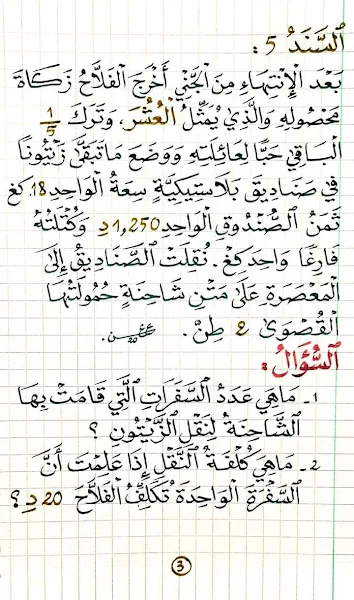 السَّنَدُ 5 :
بَعْدَ الْإِنْتِهَاءِ مِنَ الْجَنْيِ أَخْرَجَ الْفَلَّاحُ زَكَاةَ
مَحْصُولِهِ وَالَّذِي يُمَثِّلُ الْعُشْرَ، وَتَرَكَ 1/5
الْبَاقِي حَبًّا لِعَائِلَتِهِ وَوَضَعَ مَا تَبَقَّى زَيْتُونًا
فِي صَنَادِيقَ بَلَاسْتِيكِيَّةٍ سِعَةُ الْوَاحِدِ 18 كغ
ثَمَنُ الصُّنْدُوقِ الْوَاحِدِ 1,250 د وَكُتْلَتُهُ
فَارِغًا وَاحِد كغ. نُقِلَتِ الصَّنَادِيقُ إِلَى
الْمَعْصَرَةِ عَلَى مَتْنِ شَاحِنَةٍ حُمُولَتُهَا
الْقُصْوَى 2 طِنّ.
السُّؤَالُ :
1 - مَا هِيَ عَدَدُ السَّفَرَاتِ الَّتِي قَامَتْ بِهَا
الشَّاحِنَةُ لِنَقْلِ الزَّيْتُونِ ؟
2 - مَا هِيَ كُلْفَةُ النَّقْلِ إِذَا عَلِمْتَ أَنَّ
السَّفْرَةَ الْوَاحِدَةَ تُكَلِّفُ الْفَلَّاحَ 20 د ؟
3